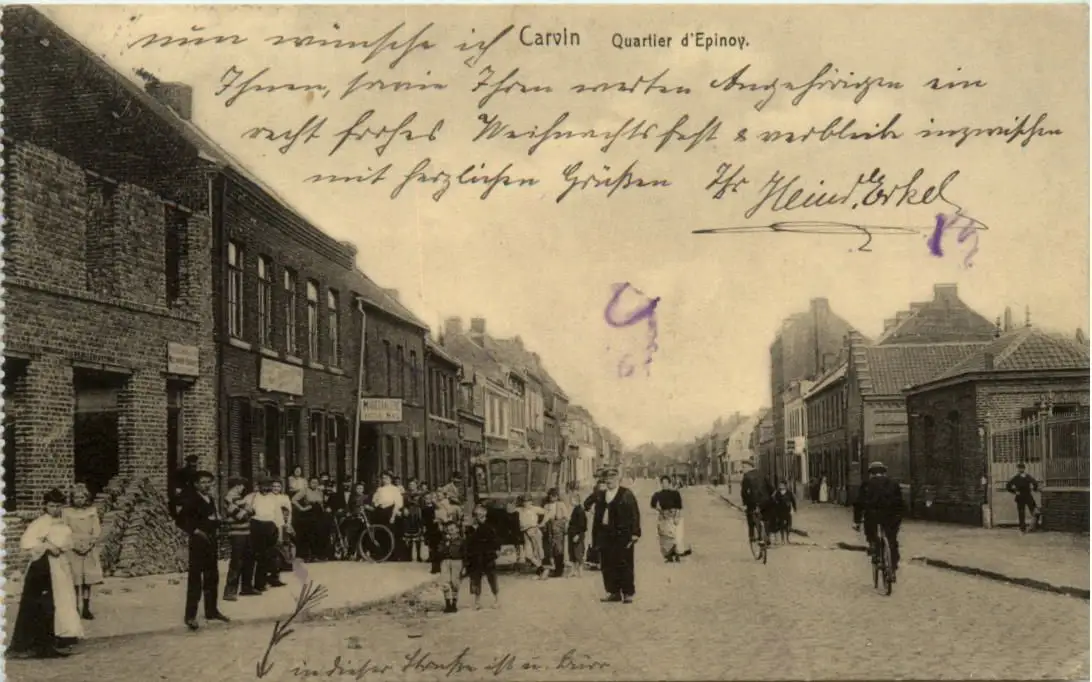 Carvin Quartier d'Epinoy.
nun wünsche ich
Ihnen, sowie Ihren werten Angehörigen ein
recht frohes Weihnachtsfest & verbleibe inzwischen
mit herzlichen Grüßen Ihr Heinr. Erkel
MARECHALERIE
in dieser Straße ist u. Büro